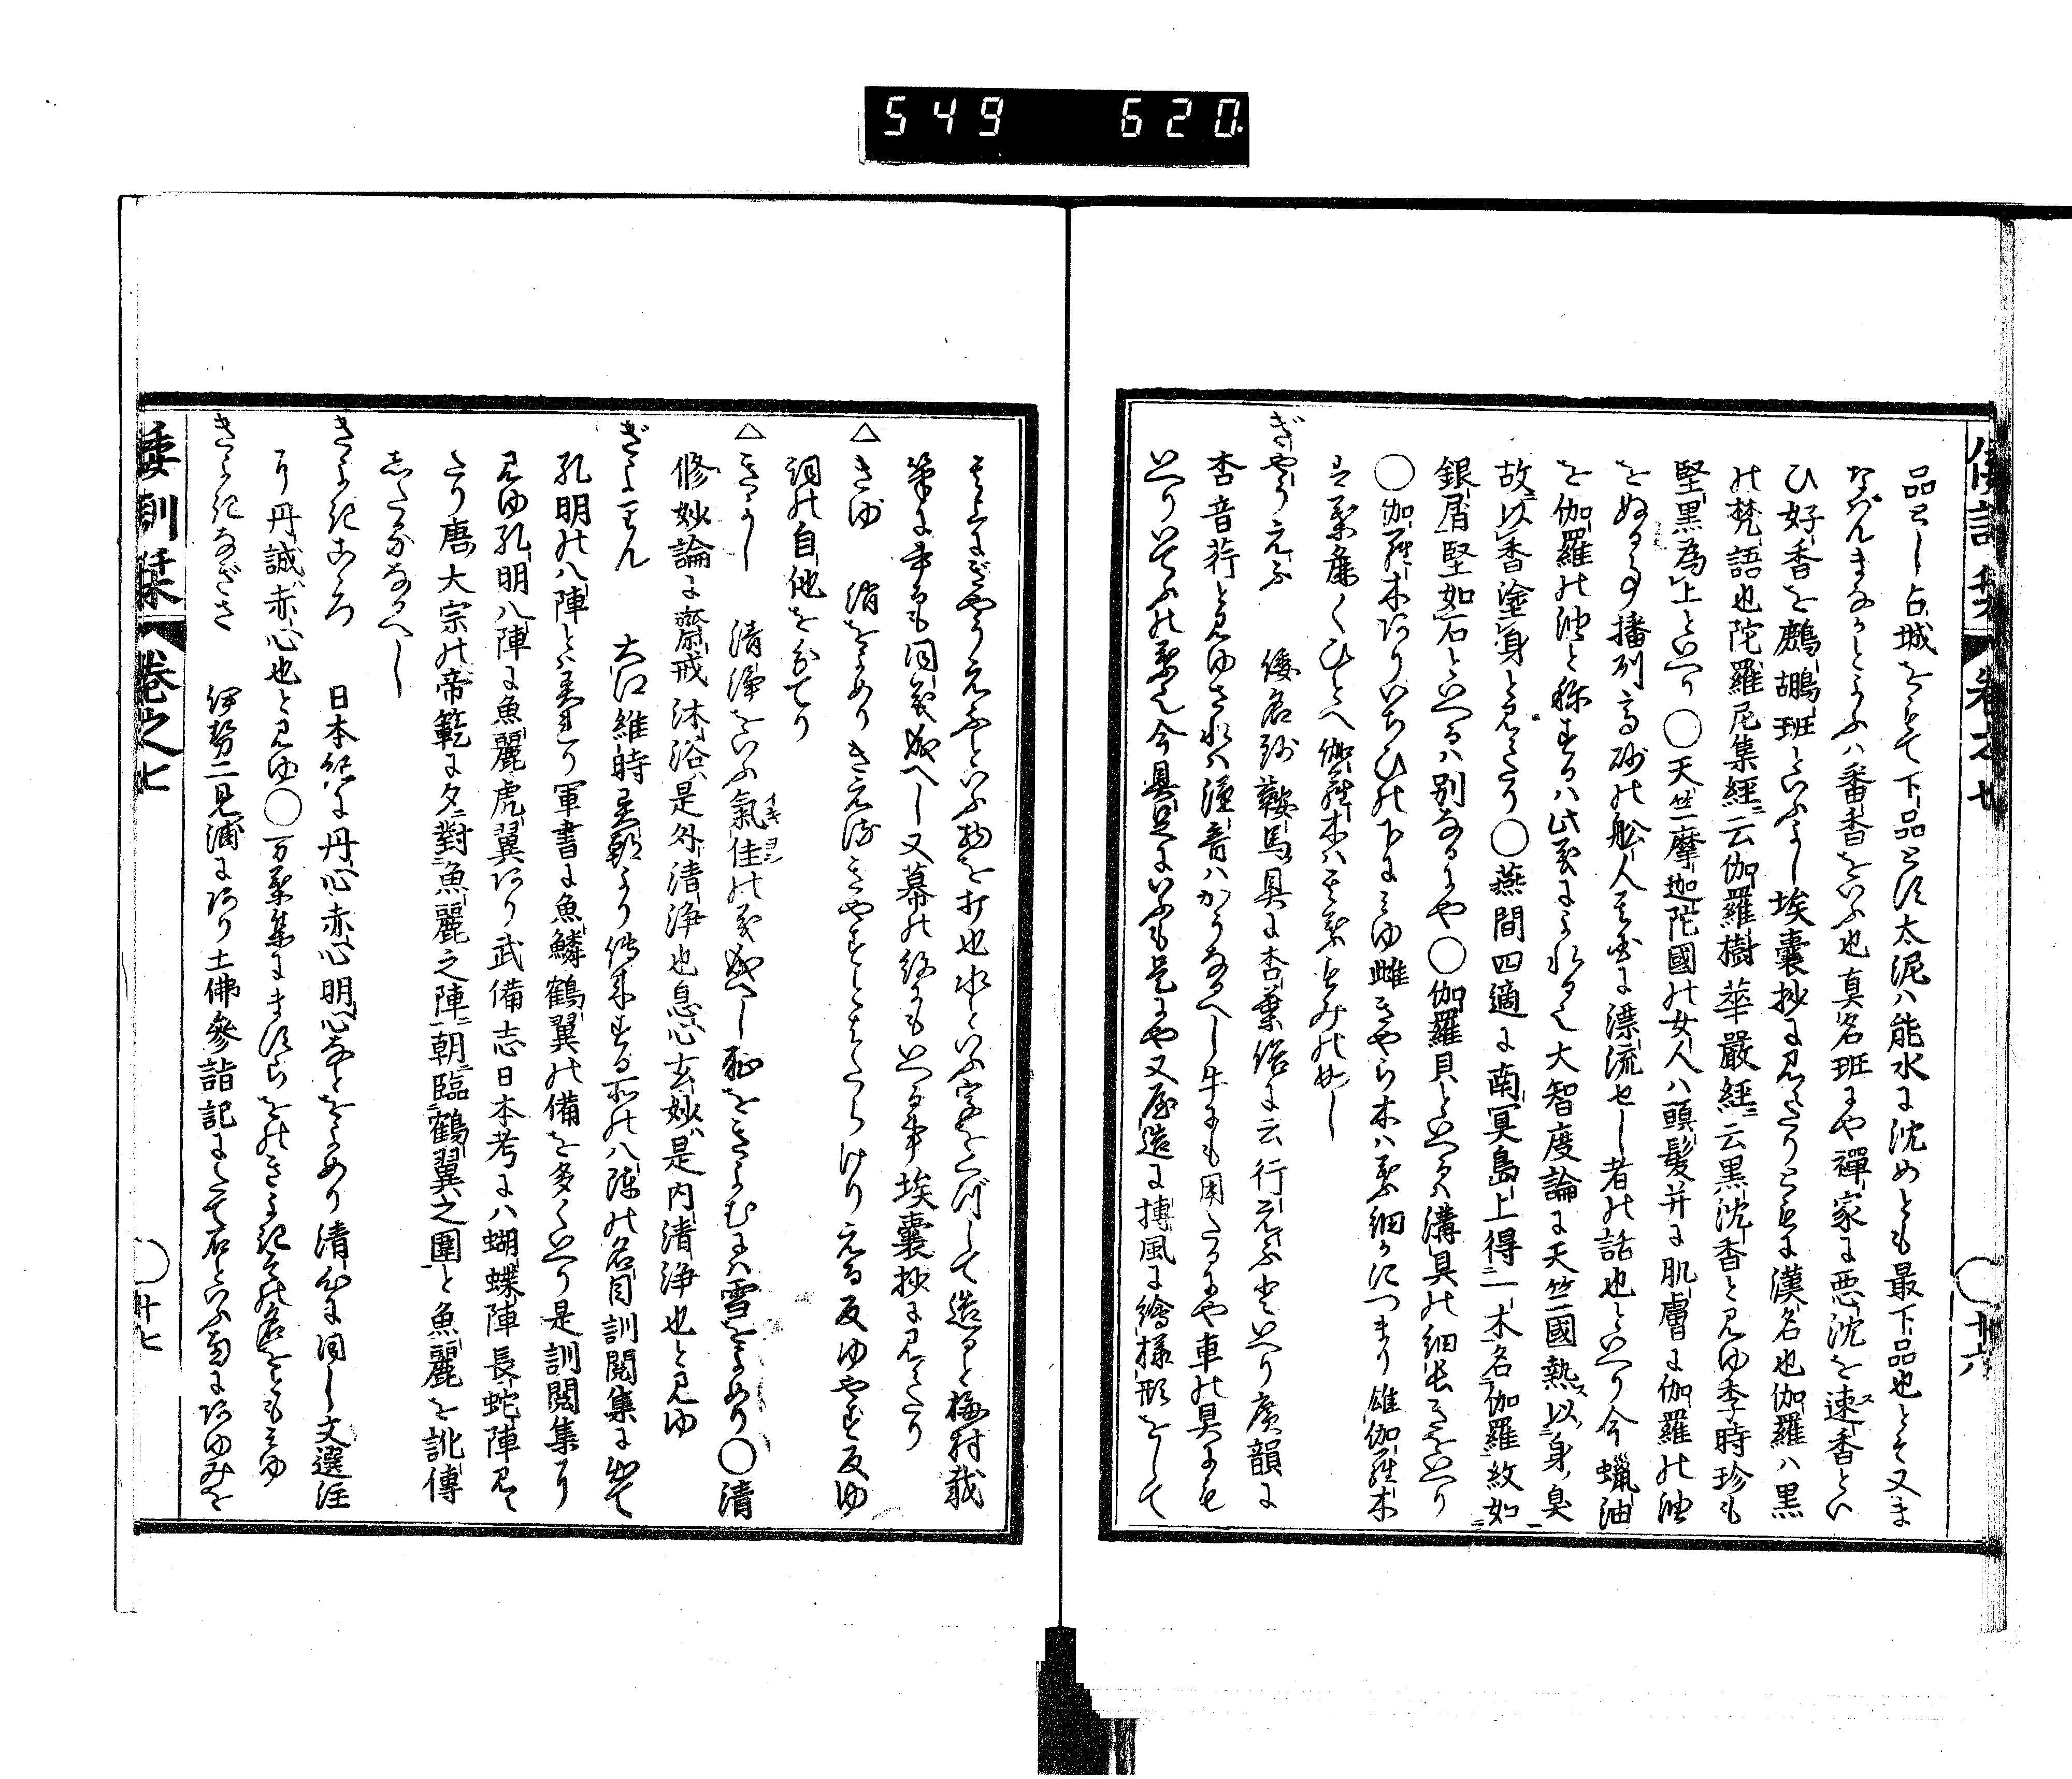 549 620
倭訓栞 卷之七 ○十六
品とし占城をもて下品とす太泥ハ能水に沈めとも最下品也とそ又ま
なばんまなかといふハ番香をいふ也真名班にや禪家に悪沈を速香とい
ひ好香を鷓鴣班といふよし埃嚢抄に見えたりともに漢名也伽羅ハ黒
の梵語也陀羅尼集經云伽羅樹華嚴經云黒沈香と見ゆ李時珍も
堅黒為上といへり○天竺摩迦陀國の女人ハ頭髪并に肌膚に伽羅の油
をぬる事播州高砂の舩人其国に漂流せし者の話也といへり今蠟油
を伽羅の油と称するハ此義によれる也大智度論に天竺國熱以身臭
故以香塗身と見えたり○燕間四適に南冥島上得一木名伽羅紋如
銀屑堅如石といへるハ別なるにや○伽羅貝といへるハ溝貝の細長きをいへり
○伽羅木ありいちひの下にみゆ雌きやら木ハ葉細くにつまり雄伽羅木
は葉麁くひとへ伽羅木ハ其葉のみの如し
ぎやうえふ 倭名鈔鞍馬具に杏葉俗に云行えふとといへり廣韻に
杏音荇と見ゆされハ漢音ハかうなるへし牛にも用たるにや車の具にも
いへりいてふの葉也今具足にいふも是にや又屋造に搏風に繪様形をして
其上にぎやうえふといふ物を打也水といふ字をくづして造ると梅村載
筆に書るも同義成へし又幕の紋にもいへる事埃嚢抄に見えたり
△きゆ 消をよめりきえ消きやすとはたらけりえる反ゆやす反ゆ
詞の自他をわかてり
△きよし 清浄をいふ氣佳の義成へし恥をきよむには雪をよめり○清
イキヨシ
修妙論に齋戒沐浴ハ是外清浄也息心玄妙ハ是内清浄也と見ゆ
ぎよりん 大江維時異朝より傳来する所の八陣の名目訓閲集に出て
孔明の八陣とハ異れり軍書に魚鱗鶴翼の備を多くいへり是訓閲集より
見ゆ孔明八陣に魚麗虎翼あり武備志日本考にハ蝴蝶陣長蛇陣見え
たり唐大宗の帝範に夕對魚麗之陣朝臨鶴翼之圍と魚麗を訛傳
したるなるへし
きよきこころ 日本紀に丹心赤心明心などをよめり清心に同し文選注
に丹誠ハ赤心也と見ゆ○万葉集にますらをのきよき其の名をともみゆ
きよきなぎさ 伊勢二見浦にあり土佛參詣記にたて石といふ南にあゆみを
倭訓栞 卷之七 ○十七